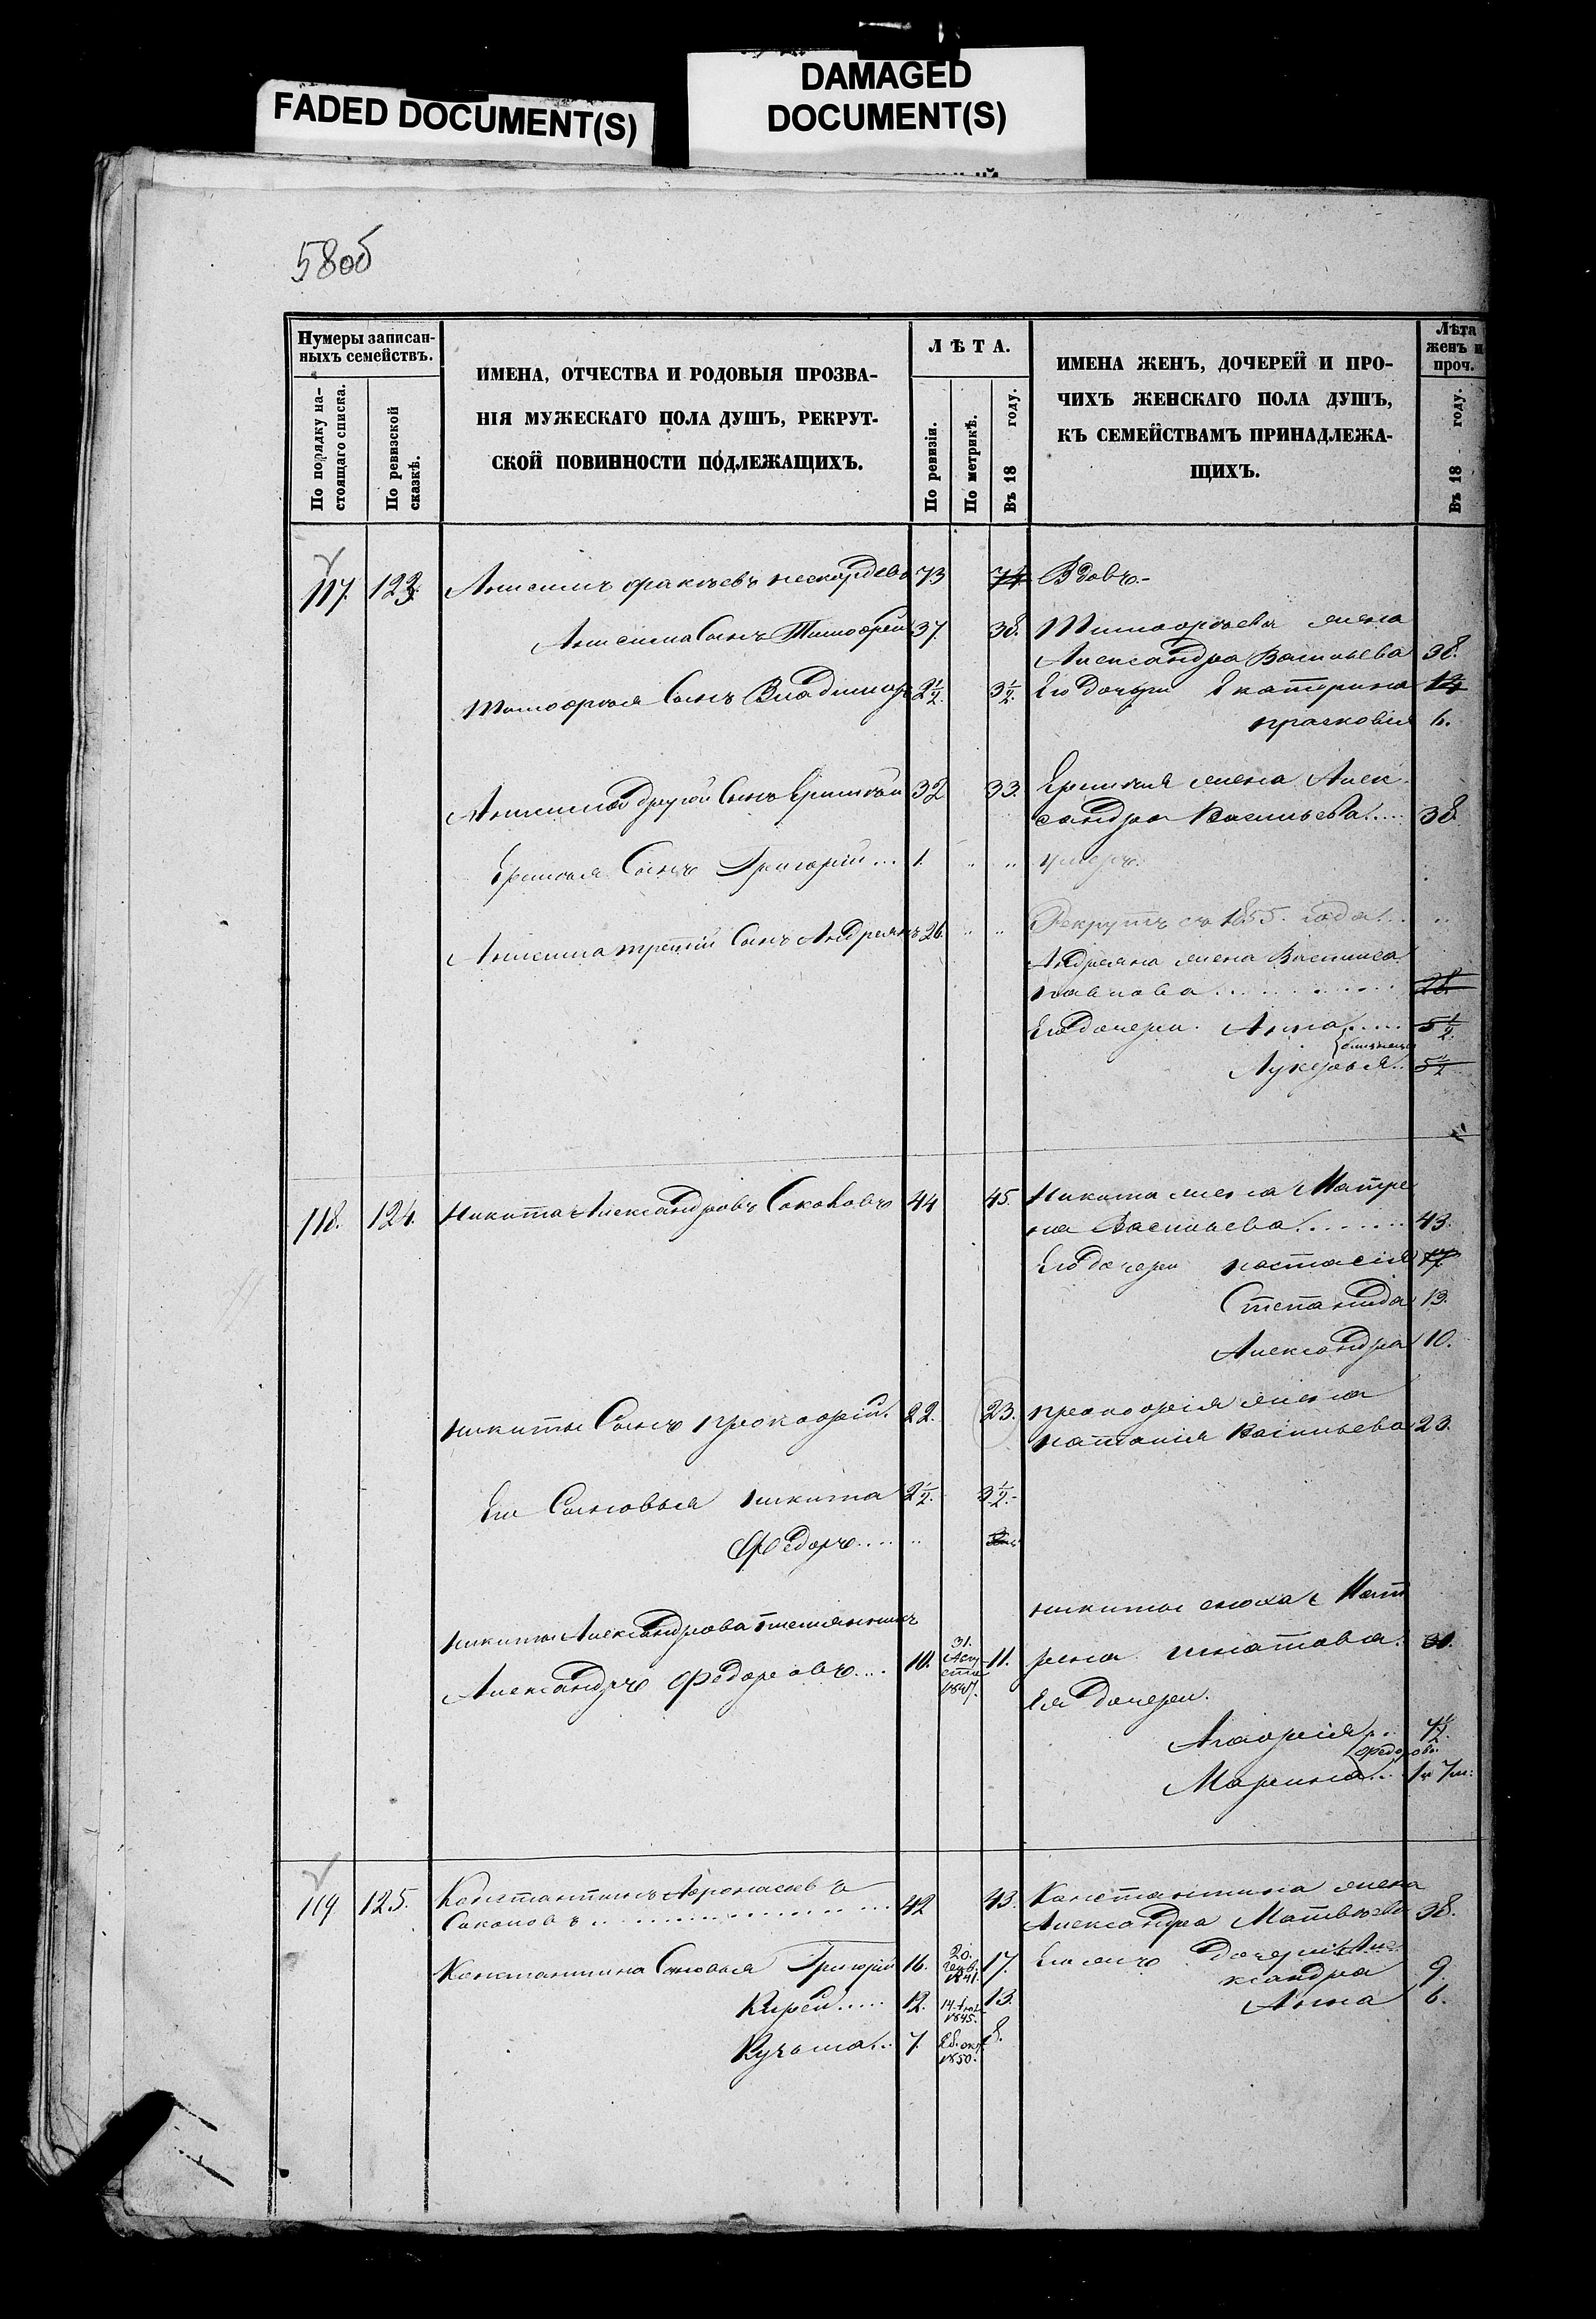 FADED DOCUMENT(S)
DAMAGED
DOCUMENT(S)
58об
Нумеры записан-
ныхъ семействъ.
По порядку на-
стоящаго списка.
По ревизской
сказкѣ.
ИМЕНА, ОТЧЕСТВА И РОДОВЫЯ ПРОЗВА-
НІЯ МУЖЕСКАГО ПОЛА ДУШЪ, РЕКРУТ-
СКОЙ ПОВИННОСТИ ПОДЛЕЖАЩИХЪ.
ЛѢТА.
По ревизіи.
По метрикѣ.
Въ 18 году.
ИМЕНА ЖЕНЪ, ДОЧЕРЕЙ И ПРО-
ЧИХЪ ЖЕНСКАГО ПОЛА ДУШЪ,
КЪ СЕМЕЙСТВАМЪ ПРИНАДЛЕЖА-
ЩИХЪ.
Лѣта
женъ и
проч.
Въ 18 году.
117. 123. 73 74 Вдовъ.-
Анисима Сынъ Тимофей 37. 38. Тимофѣева жена
Александра Васильева 38.
Тимофея Сынъ Владимиръ 2½. 3½. Его дочери Екатерина 14
Прасковія 6.
Анисима другой Сынъ Ермолай 32 33. Ермолая жена Алек
сандра Васильева.... 38
Ермолая Сынъ Григорій... 1. .. .. умеръ.
Анисима третій Сынъ Андреянъ 26. .. .. Рекрутъ съ 1855. года.. ..
Андреяна жена Васелиса
Павлова 28.
Его дочери. Анна..... 5½.
близнецы
Лукерья.. 5½
118. 124. Никита Александровъ Соколовъ 44 45. Никиты жена Матре
на Васильева....... 43.
Его дочери Настасія 17.
Степанида 13.
Александра 10.
Никиты Сынъ Прокофій. 22. 23. Прокофія жена
Наталія Васильева 23.
Его Сыновья Никита 2½. 3½.-
Федоръ.... ..
Никиты сноха Мат
Никиты Александрова племянникъ
31.
Авгу
ста
1847.
Александръ Федоровъ.... 10. 11. рена Игнатова. 31.
Ея дочери.
Агафія.. 4½.
Федоровы.
Марина... 1 г 7 м:
119 125. Константинъ Афонасьевъ
Соколовъ 42 43. Константина жена
Александра Матвѣева 38.
Константина Сыновья Григорій 16. 20. Генв. 1841. 17. Его жъ дочери Але-
ксандра 9.
Кирей..... 12. 14. 1845. 13. Анна 6.
Кузьма.. 7. 28. окт 1850. 8.